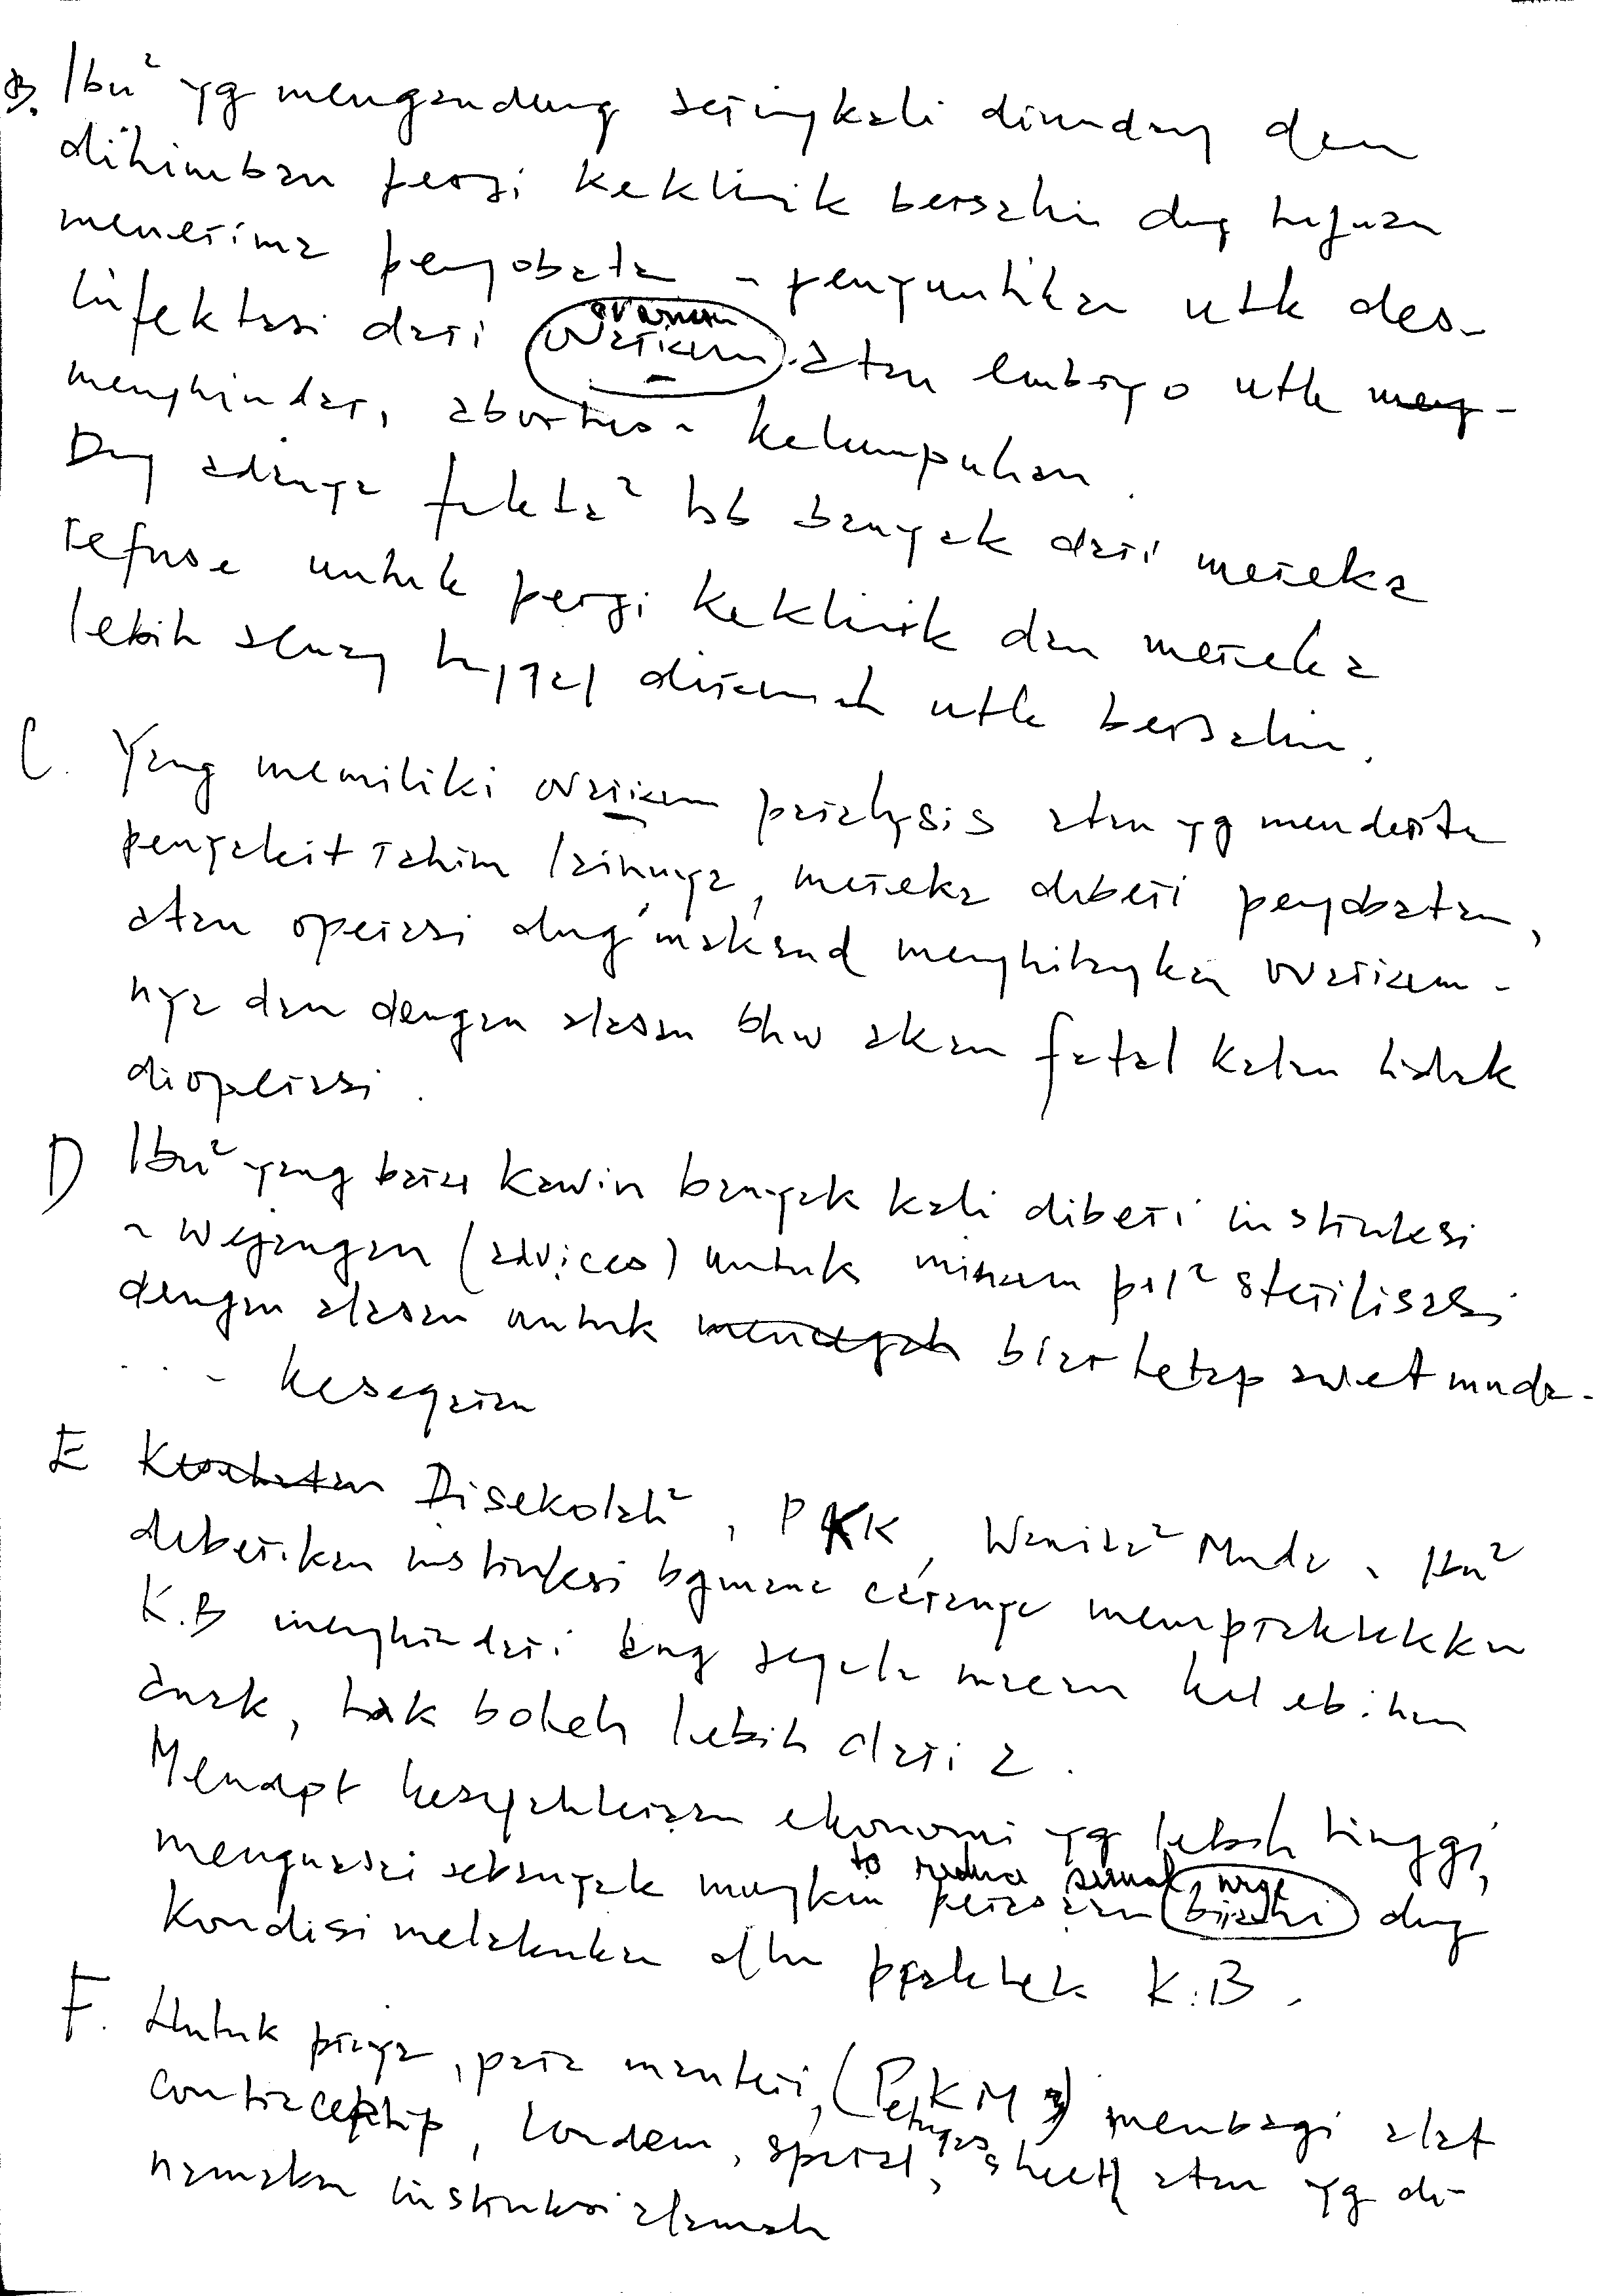 B. Ibu² yg mengandung seringkali diundang dan
dihimbau pergi keklinik bersalin dng tujuan
menerima pengobatan - penyuntikan utk des-
infektasi dari ovarium atau embryo utk meng-
ovarium
menghindari abortus - kelumpuhan.
Dng adanya fakta² tsb banyak dari mereka
refuse untuk pergi keklinik dan mereka
lebih senang tinggal dirumah utk bersalin.
C. Yang memiliki ovarium paralysis atau yg menderita
penyakit rahim lainnya, mereka diberi pengobatan,
atau operasi dng maksud menghilangkan ovarium-
nya dan dengan alasan bhw akan fatal kalau tidak
dioperasi.
D Ibu² yang baru kawin banyak kali diberi instruksi
- wejangan (advices) untuk minum pil² sterilisasi
dengan alasan untuk mencegah biar tetap awet muda.
... - kesegaran
E Kesehatan Disekolah², PKK, Wanita² Muda - Ibu²
diberikan instruksi bgmana caranya mempraktekkan
K.B menghindari dng segala macam kelebihan
anak, tak boleh lebih dari 2.
Mendpt kesejahteraan ekonomi yg lebih tinggi,
to reduce sexual urge
menguasai sebanyak mungkin perasaan birahi dng
kondisi melakukan dlm praktek K.B.
F. Untuk prianya, para manteri, (PKM) membagi alat
Petugas
contraceptip, kondom, spiral, sheeth atau yg di-
namakan instruksi alamiah